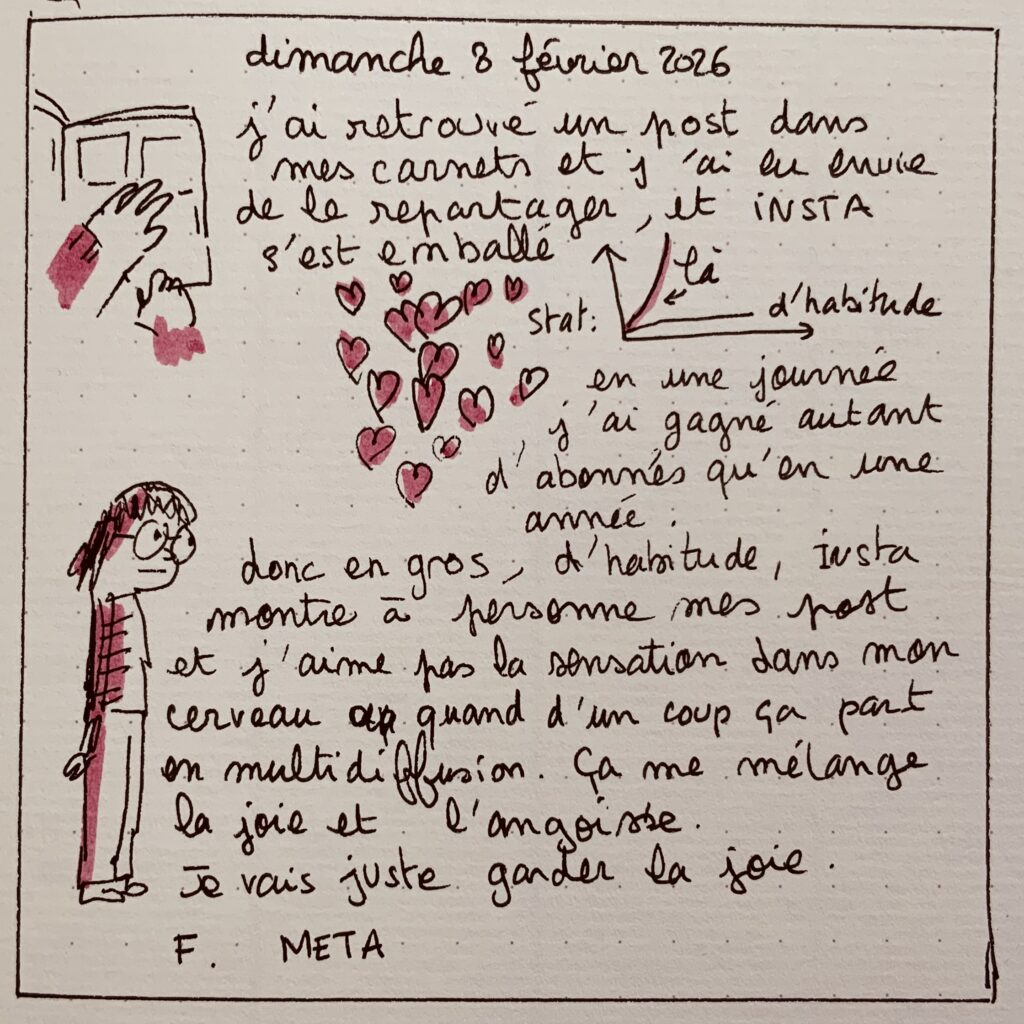 dimanche 8 février 2026
j'ai retrouvé un post dans
mes carnets et j'ai eu envie
de le repartager, et INSTA
s'est emballé
stat:
là
d'habitude
en une journée
j'ai gagné autant
d'abonnés qu'en une
année.
donc en gros, d'habitude, insta
montre à personne mes post
et j'aime pas la sensation dans mon
cerveau quand d'un coup ça part
en multidiffusion. Ça me mélange
la joie et l'angoisse.
Je vais juste garder la joie.
F. META